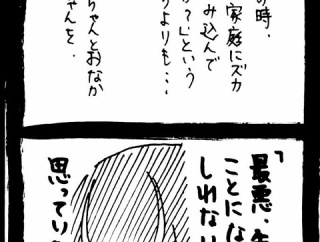 の時、
家庭にズカ
み込んで
？」という
よりも…
ちゃんとおなか
ちゃんを。
「最悪、
ことにな
しれな
思ってい